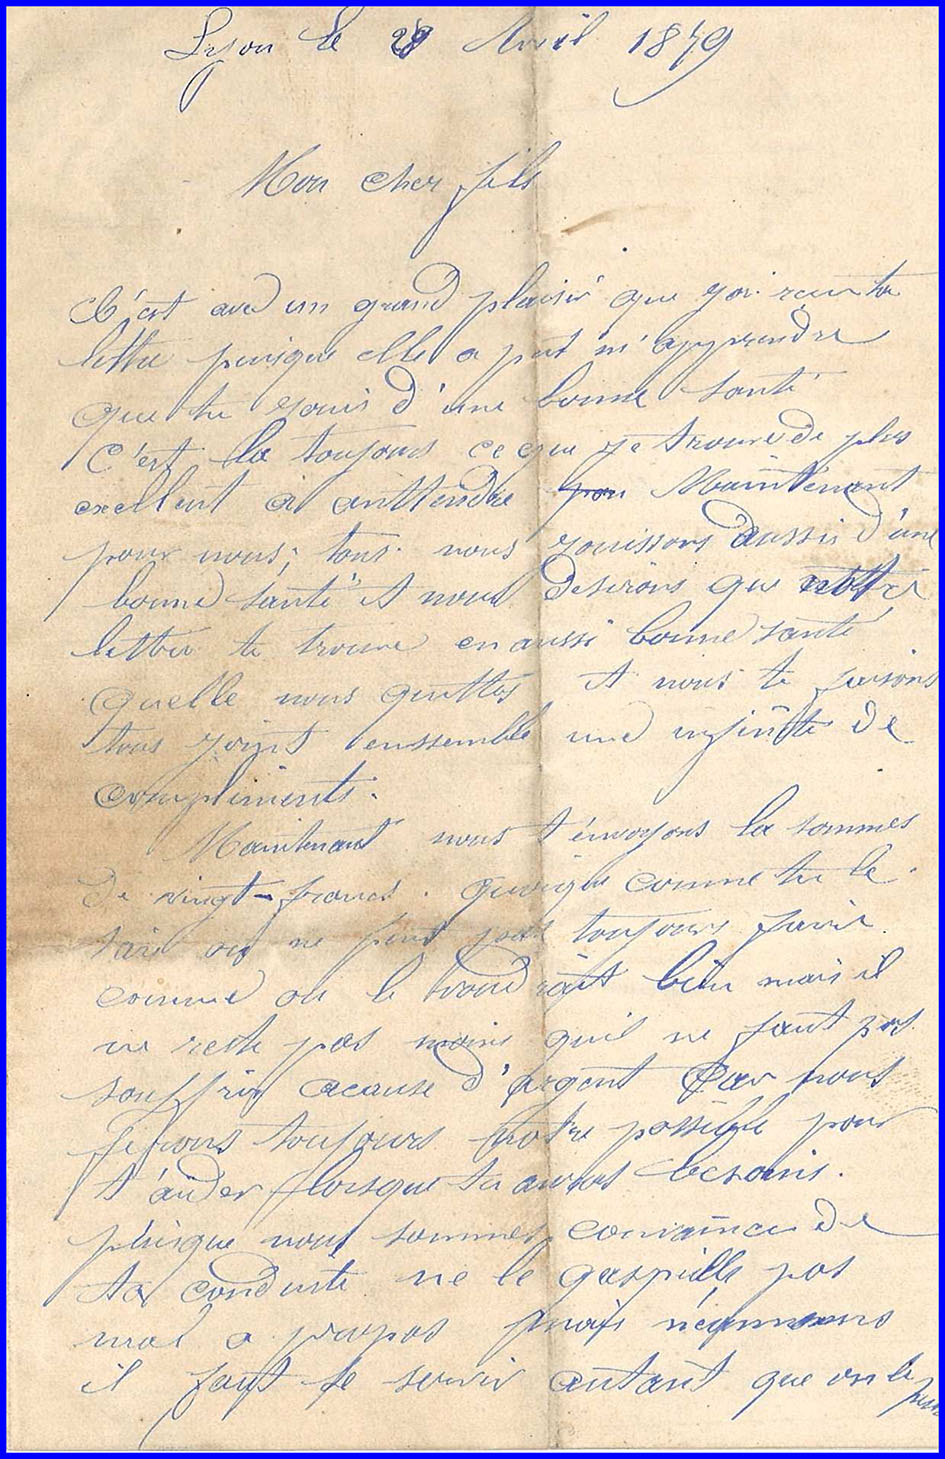 Lyon le 29 Avril 1879
Mon cher fils
C'est avec un grand plaisir que j'ai recu ta
lettre puisque elle a put m'apprendre
que tu jouis d'une bonne santé
C'est la toujours ce que je trouve de plus
exellent à enttendre Maintenant
pour nous, tous nous jouissons aussi d'une
bonne santé et nous desirons que notre
lettre te trouve en aussi bonne santé
quelle nous quittes et nous te faisons
tous joint enssemble une infinite de
compliments.
Maintenant nous t'envoyons la sommes
de vingt-francs. quoique comme tu le
sais on ne peut pas toujours faire
comme on le voudrait bien mais il
ne reste pas moins quil ne faut pas
souffrir acause d'argent Car nous
ferons toujours notre possible pour
t'aider lorsque tu auras besoins.
puisque nous sommes convaincu de
ta conduite ne le gaspille pas
mal a propos mais néanmoins
il faut se servir autant que on le